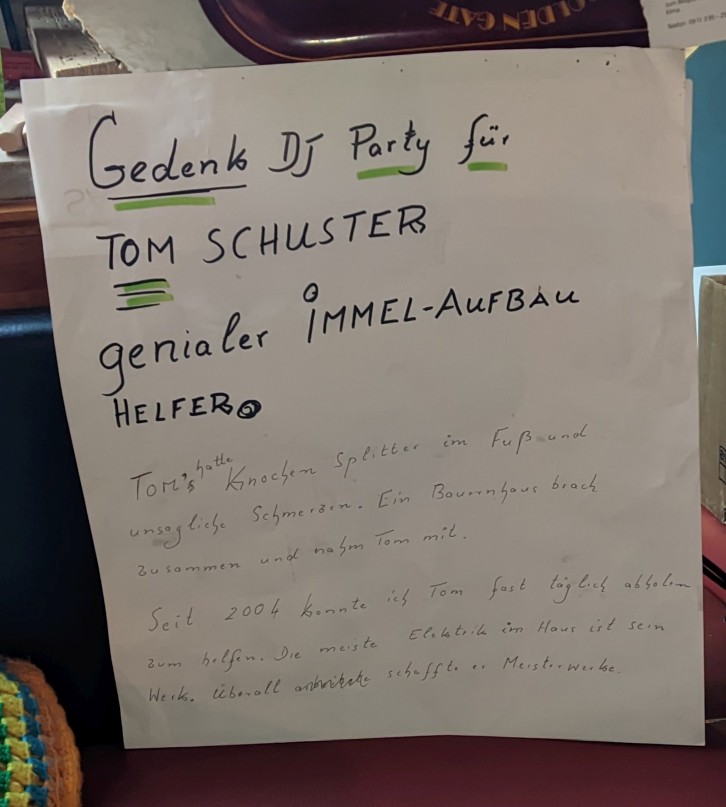 OLDEN GATE
Gedenk DJ Party für
TOM SCHUSTER
genialer IMMEL-AUFBAU
HELFER
Tom's hatte Knochen Splitter im Fuß und
unsagliche Schmerzen. Ein Bauernhaus brach
zusammen und nahm Tom mit.
Seit 2004 konnte ich Tom fast täglich abholen
zum helfen. Die meiste Elektrik im Haus ist sein
Werk. Überall schaffte er Meisterwerke.